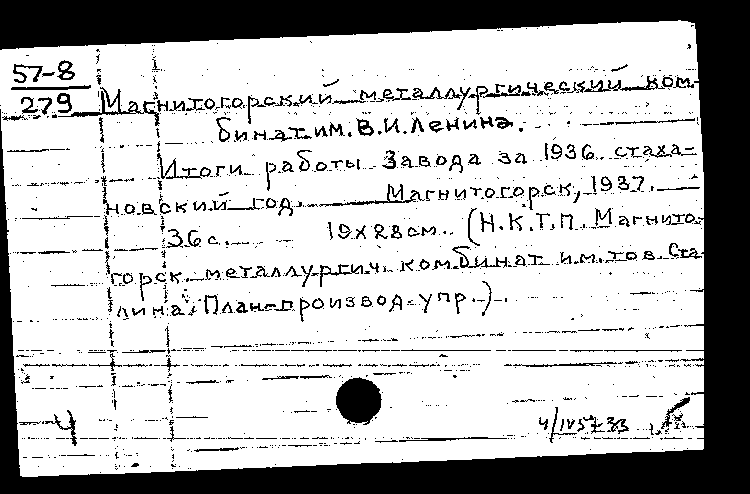 57-8
279
Магнитогорский металлургический ком-
бинат им. В.И. Ленина.
Итоги работы завода за 1936 стаха-
новский год. Магнитогорск, 1937.
36 с. 19x28 см. (Н.К.Т.П. Магнито-
горск. металлургич. комбинат им. тов. Ста
лина. План-производ. упр.).
4
4/IV57